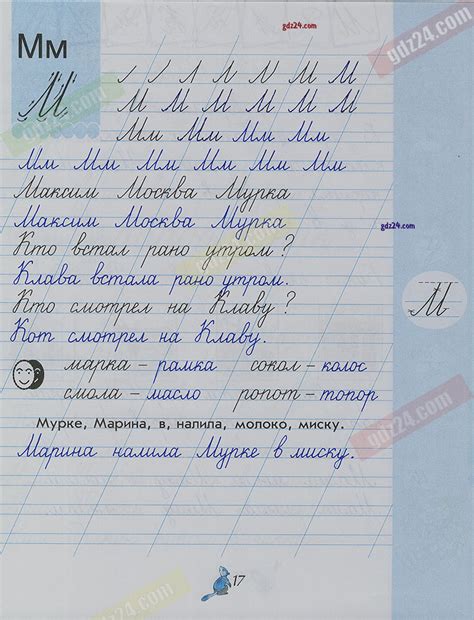 gdz24.com
Мм
М М М
М М М М М М М
Мм Мм Мм Мм
Мм Мм Мм Мм Мм Мм
Максим Москва Мурка
Максим Москва Мурка
gdz24.com
Кто встал рано утром?
Клава встала рано утром.
Кто смотрел на Клаву?
М
Кот смотрел на Клаву.
марка – рамка сокол – колос
смола – масло ропот – топор
Мурке, Марина, в, налила, молоко, миску.
Марина налила Мурке в миску.
gdz24.com
17